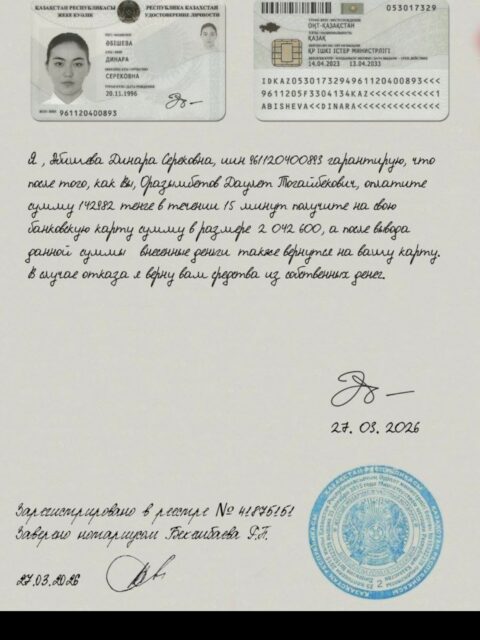 ҚАЗАҚСТАН РЕСПУБЛИКАСЫ
ЖЕКЕ КУӘЛІК
РЕСПУБЛИКА КАЗАХСТАН
УДОСТОВЕРЕНИЕ ЛИЧНОСТИ
ӘБІШЕВА
ДИНАРА
СЕРЕКОВНА
20.11.1996
961120400893
053017329
ОҢТ-ҚАЗАҚСТАН
ҚАЗАҚ
ҚР ІШКІ ІСТЕР МИНИСТРЛІГІ
14.04.2023 13.04.2033
IDKAZ0530173294961120400893<<<
9611205F3304134KAZ<<<<<<<<<<<1
ABISHEVA<<DINARA<<<<<<<<<<<<<<
Я , Әбишева Динара Серековна, иин 961120400893 гарантирую, что
после того, как Вы, Оразымбетов Даулет Тогайбекович, оплатите
сумму 142982 тенге в течении 15 минут получите на свою
банковскую карту сумму в размере 2 042 600, а после вывода
данной суммы внесенные деньги также вернутся на вашу карту.
В случае отказа я верну вам средства из собственных денег.
27. 03. 2026
Зарегистрировано в реестре № 41875151
Заверено нотариусом Бекенбаева Г.Г.
27.03.2026